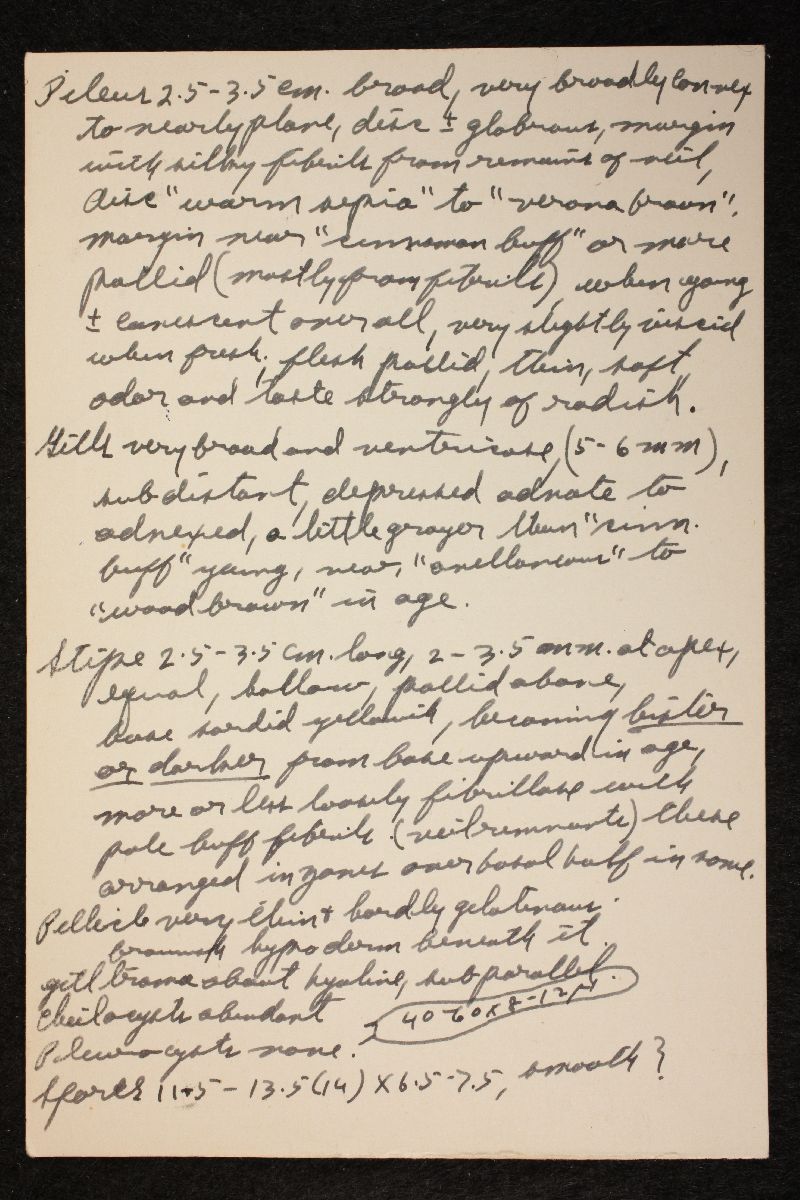 Pileus 2.5-3.5 cm. broad, very broadly convex
to nearly plane, disc ± glabrous, margin
with silky fibrils from remains of veil,
disc "warm sepia" to "verona brown",
margin near "cinnamon buff" or more
pallid (mostly from fibrils), when young
± canescent over all, very slightly viscid
when fresh; flesh pallid, thin, soft,
odor and taste strongly of radish.
Gills very broad and ventricose, (5-6 mm),
subdistant, depressed adnate to
adnexed, a little grayer than "cinn.
buff" young, near "avellaneous" to
"wood brown" in age.
Stipe 2.5-3.5 cm. long, 2-3.5 mm. at apex,
equal, hollow, pallid above,
base sordid yellowish, becoming bister
or darker from base upward in age,
more or less loosely fibrillose with
pale buff fibrils (veil remnants) these
arranged in zones over basal half in some.
Pellicle very thin + hardly gelatinous.
brownish hypoderm beneath it.
gill trama about hyaline, subparallel.
Cheilocysts abundant 40-60 x 8-12 μ
Pleurocysts none.
Spores 11.5-13.5(14) X 6.5-7.5, smooth?